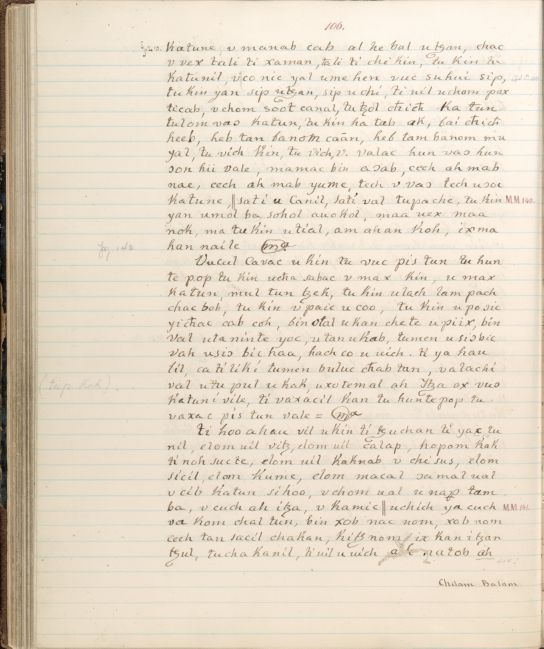 106.
katune, u manab cab al he bal u tzan, chac
u vex tali ti xaman, tali ti chikin, tu kin tu
katunil, uconic yal u mehen vuc suhui sip,
tu kin yan sip utzan, sip u chi, ti nil uchom pax
ticab, vchom soot canal, tu tzol chich Katun
tulom vas katun, tu kin ha tab ak, bai chich
heeb, heb tan banom caan, heb tam banom mu
yal, tu vich kin, tu vich, v. valac hun vas hun
son hii vale, mamac bin asab, cech ah mab
nae, cech ah mab yume, tech v vas tech usou
katune, || sati u Canil, sati val tupache, tu kin M.M 140.
yan umol ba sohol auohol, maa uex maa
noh, ma tu kin utial, am ahan koh, ixma
kan naile
Vucul Cavac u kin tu vuc pis tun tu hun
te pop tu kin ucha sabac v max kin, u max
katun, mul tun tzek, tu kin ulach lam pach
chac bob, tu kin v paic u coo, tu kin u posic
yichac cab coh, bin otal u kan chete u piix, bin
val utaninte yoc, u tan u kab, tumen usisbic
vah usis bic haa, hach co u uich. ti ya hau
lil, ca ti liki tumen buluc chab tan, valachi
val u tu pul u kak, uxotemal ah Itza ox vus
katuni vile, ti vaxacil kan tu hunte pop tu
vaxac pis tun vale =
ti hoo ahau vil ukin ti tzuchan ti yax tu
nil, elom uil vitz, elom uil calap, hopom kak
ti noh sucte, elom uil kaknab v chisus, elom
sicil, elom kume, elom macal samal ual
v cib katun sihoo, vchom ual unap tam
ba, v cuch ah itza, v kamic || uchich ya cuch M.M 141.
va kom chal tun, bin xob nac nom, xob nom
cech tan sacil chakan, hitz nom ix kan itzan
tzul, tucha kanil, ti uil u uich natob ah
Chilam Balam